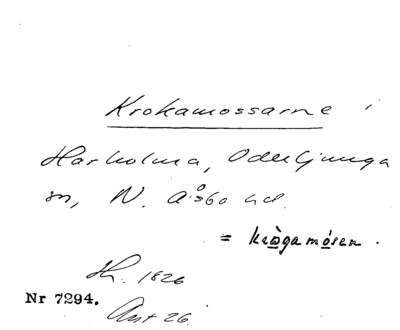 Krokamossarne i
Harholma, Oderljunga
sn, N. Åsbo hd.
= krògamósen.
H. 1826
Nr 7294.
Ant 26